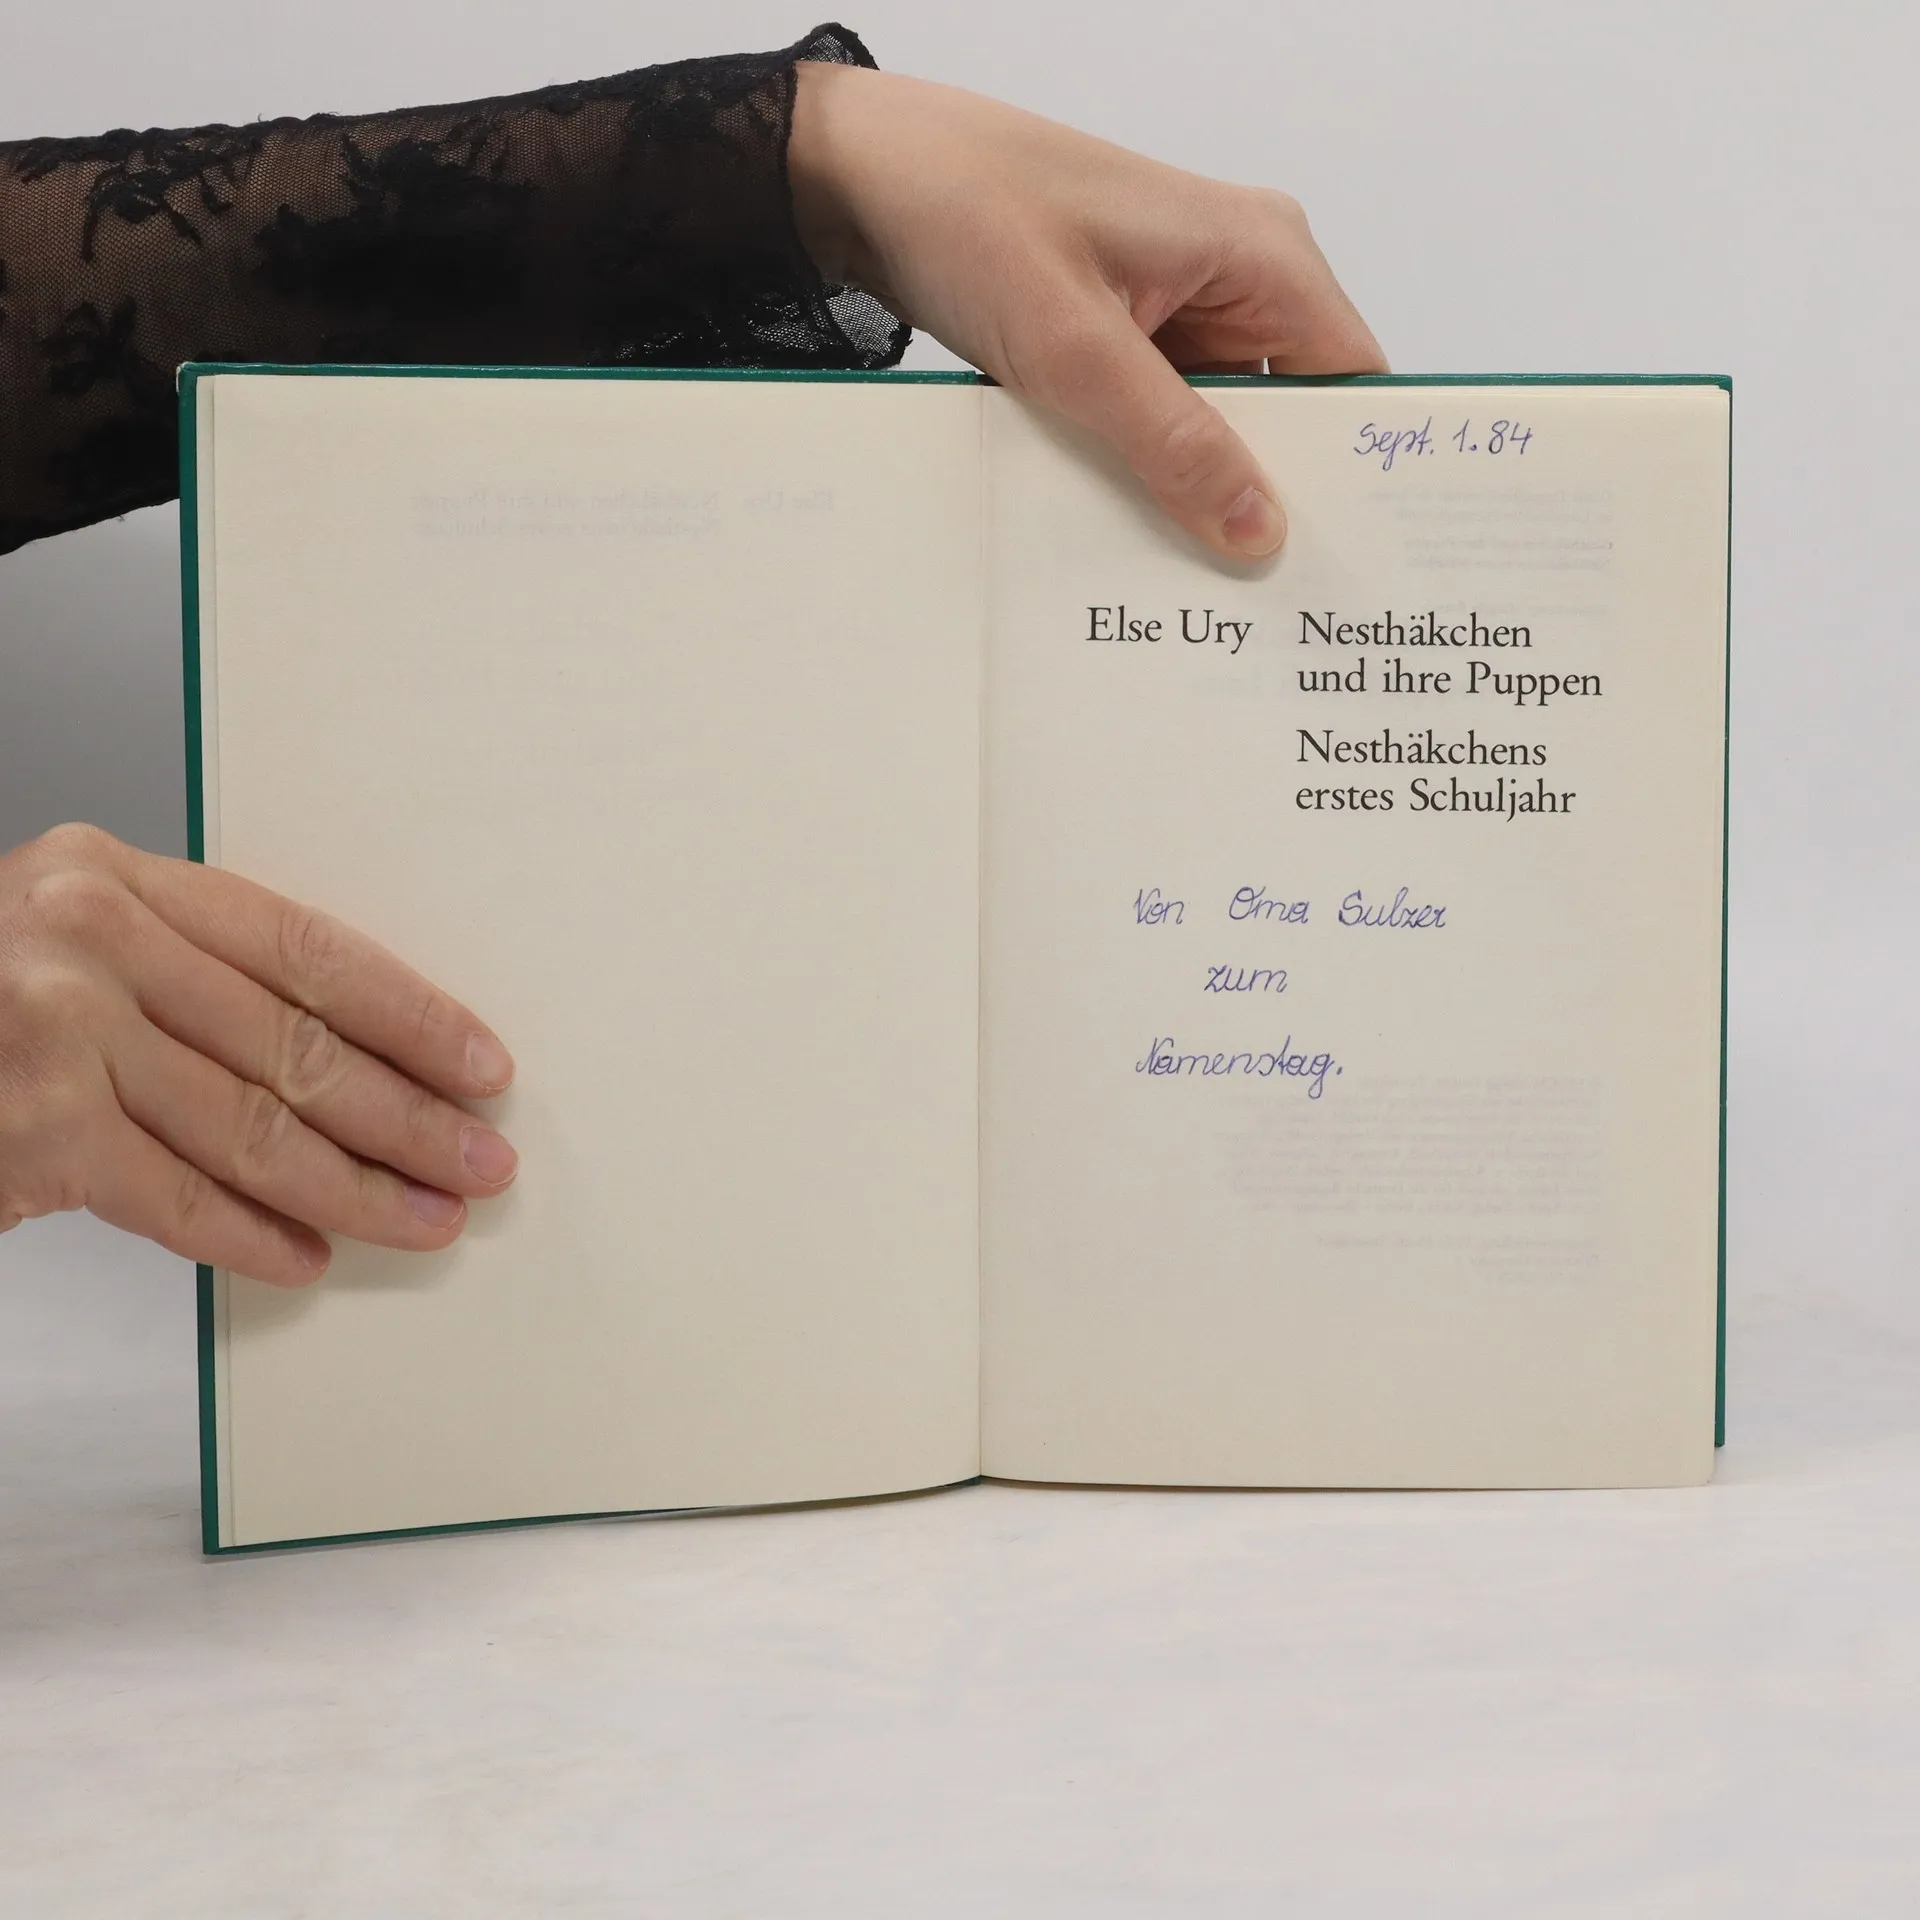 Sept. 1. 84
Else Ury
Nesthäkchen
und ihre Puppen
Nesthäkchens
erstes Schuljahr
Von Oma Sulzer
zum
Namenstag.